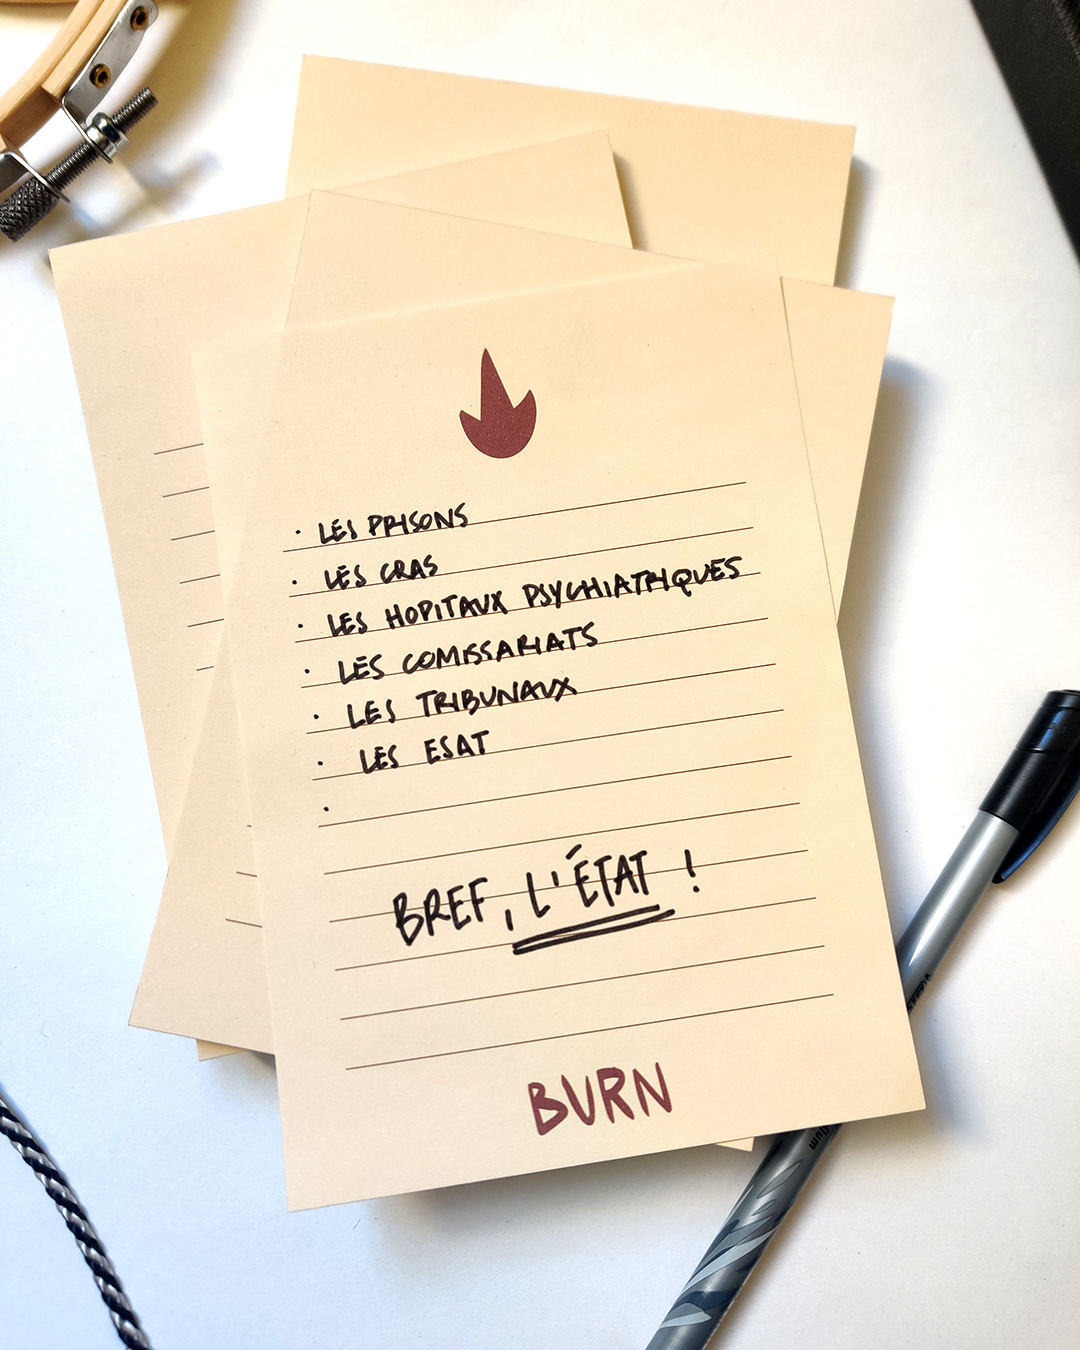 · LES PRISONS
· LES CRAS
· LES HOPITAUX PSYCHIATRIQUES
· LES COMISSARIATS
· LES TRIBUNAUX
· LES ESAT
·
BREF, L'ÉTAT !
BURN